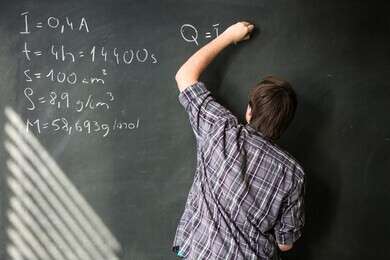 I = 0,4 A
t = 4h = 14400s
s = 100 cm²
ρ = 8,9 g/cm³
M = 58,693g/mol
Q = I